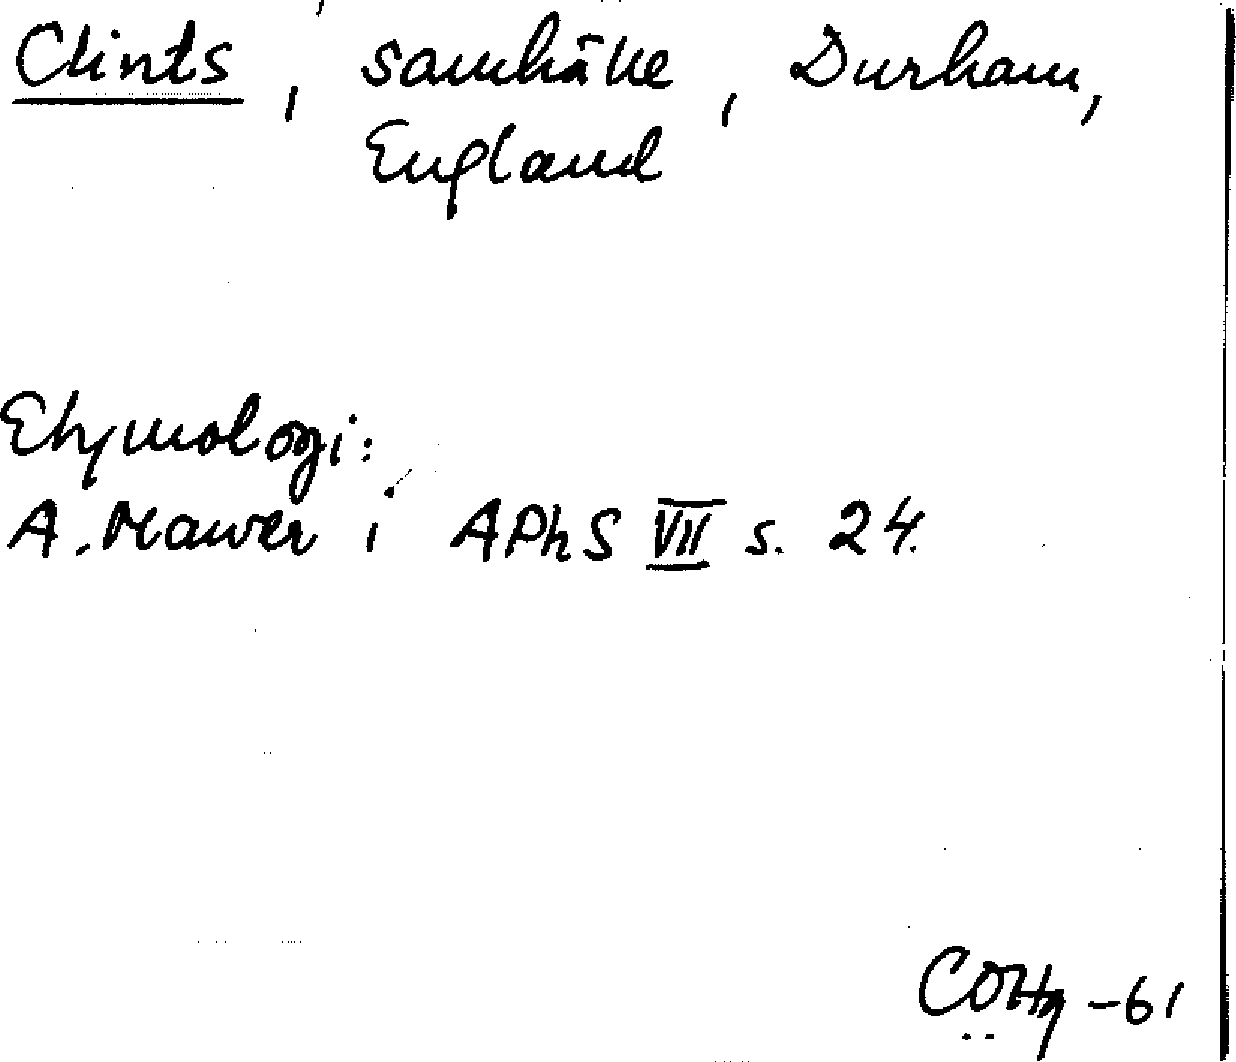 Clints, samhälle, Durham,
England
Etymologi:
A. Mawer i APhS VII s. 24.
-61